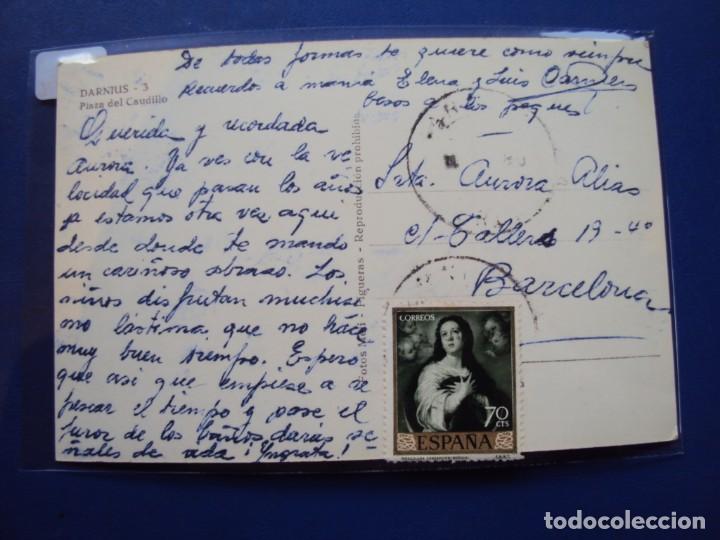 De todas formas te quiere como siempre
Recuerdos a mamá Elena y Luis
besos a los peques
DARNIUS - 3
Plaza del Caudillo
Querida y recordada
Aurora. Ya ves con la ve
locidad que pasan los años
ya estamos otra vez aqui
desde donde te mando
un cariñoso abrazo. Los
niños disfrutan muchisi
mo lástima que no hace
muy buen tiempo. Espero
que asi que empiese a re
frescar el tiempo y pase el
furor de los baños darás se
ñales de vida ¡Ingrata!
Fotos Meli - Figueras - Reproducción prohibida
Srta. Aurora Alias
c/ Tallers 13 - 4º
Barcelona
CORREOS
70
CTS
ESPAÑA
todocoleccion
todocoleccion.net